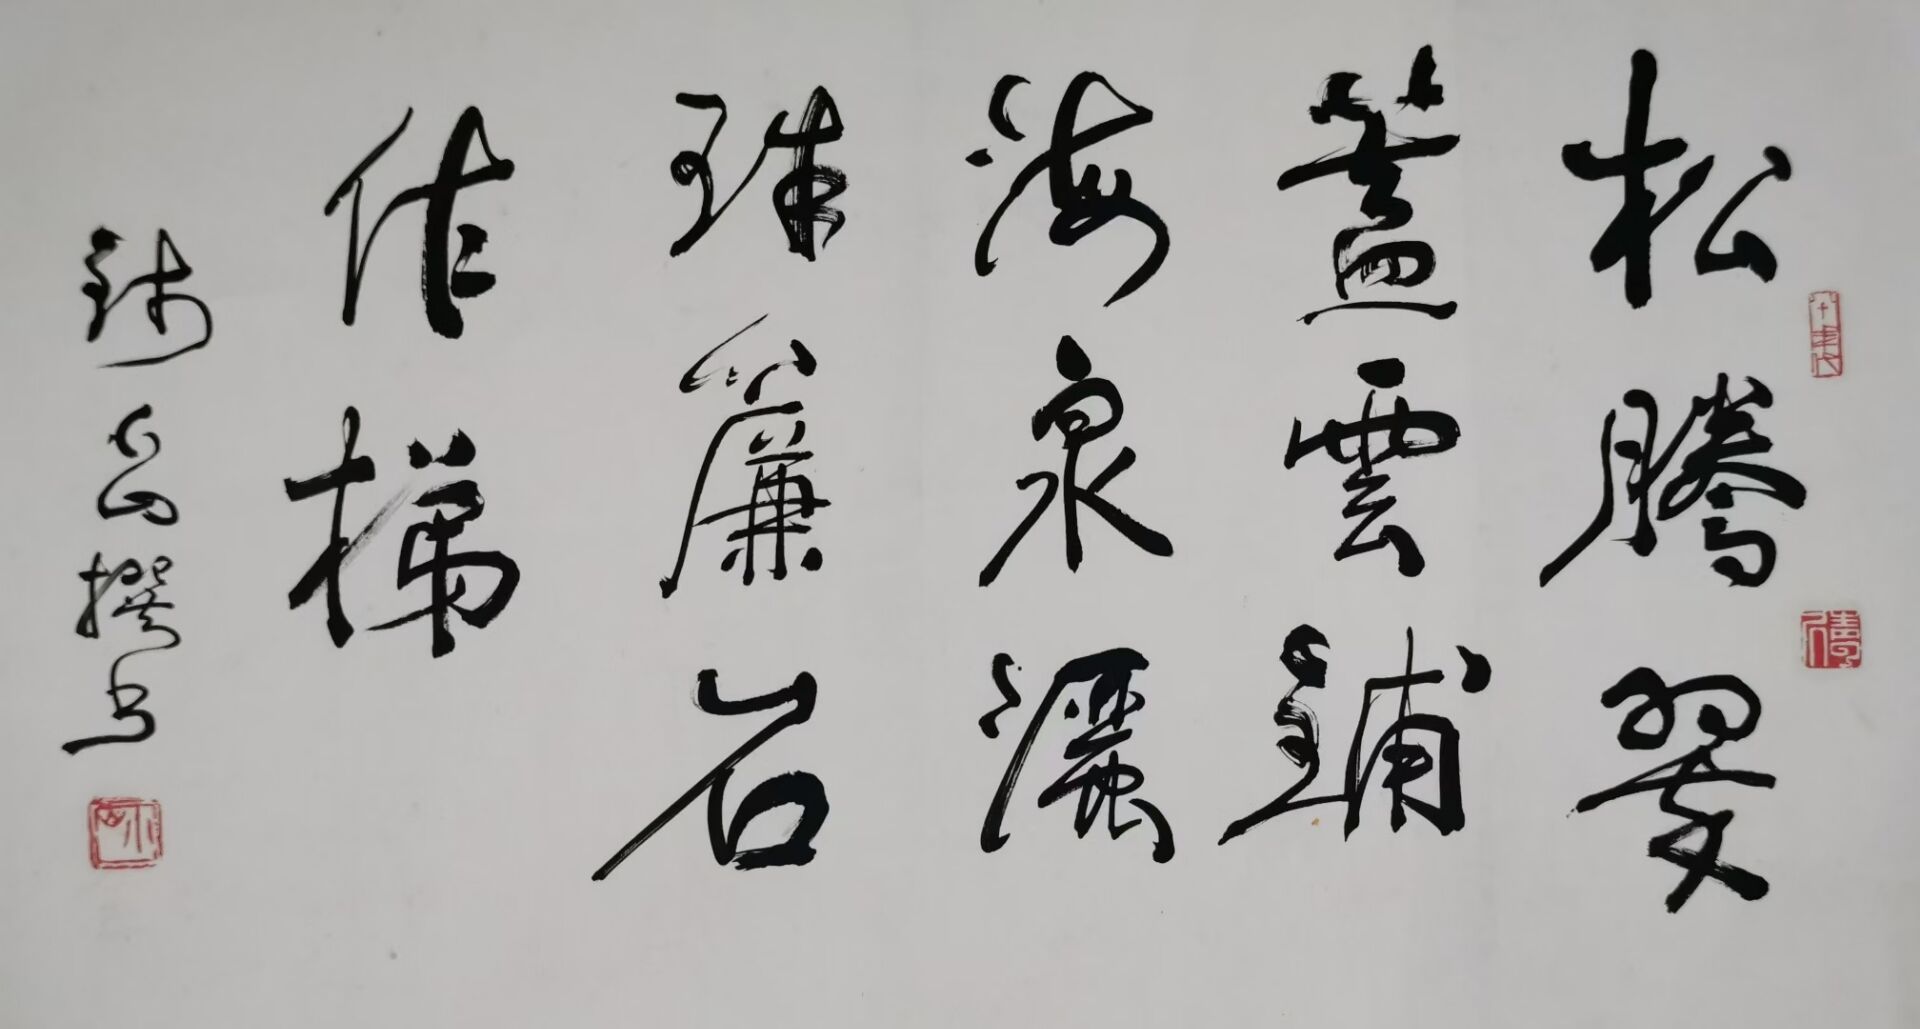 松騰翠
蓋雲鋪
海泉灑
珠簾石
作梯
岳撰书